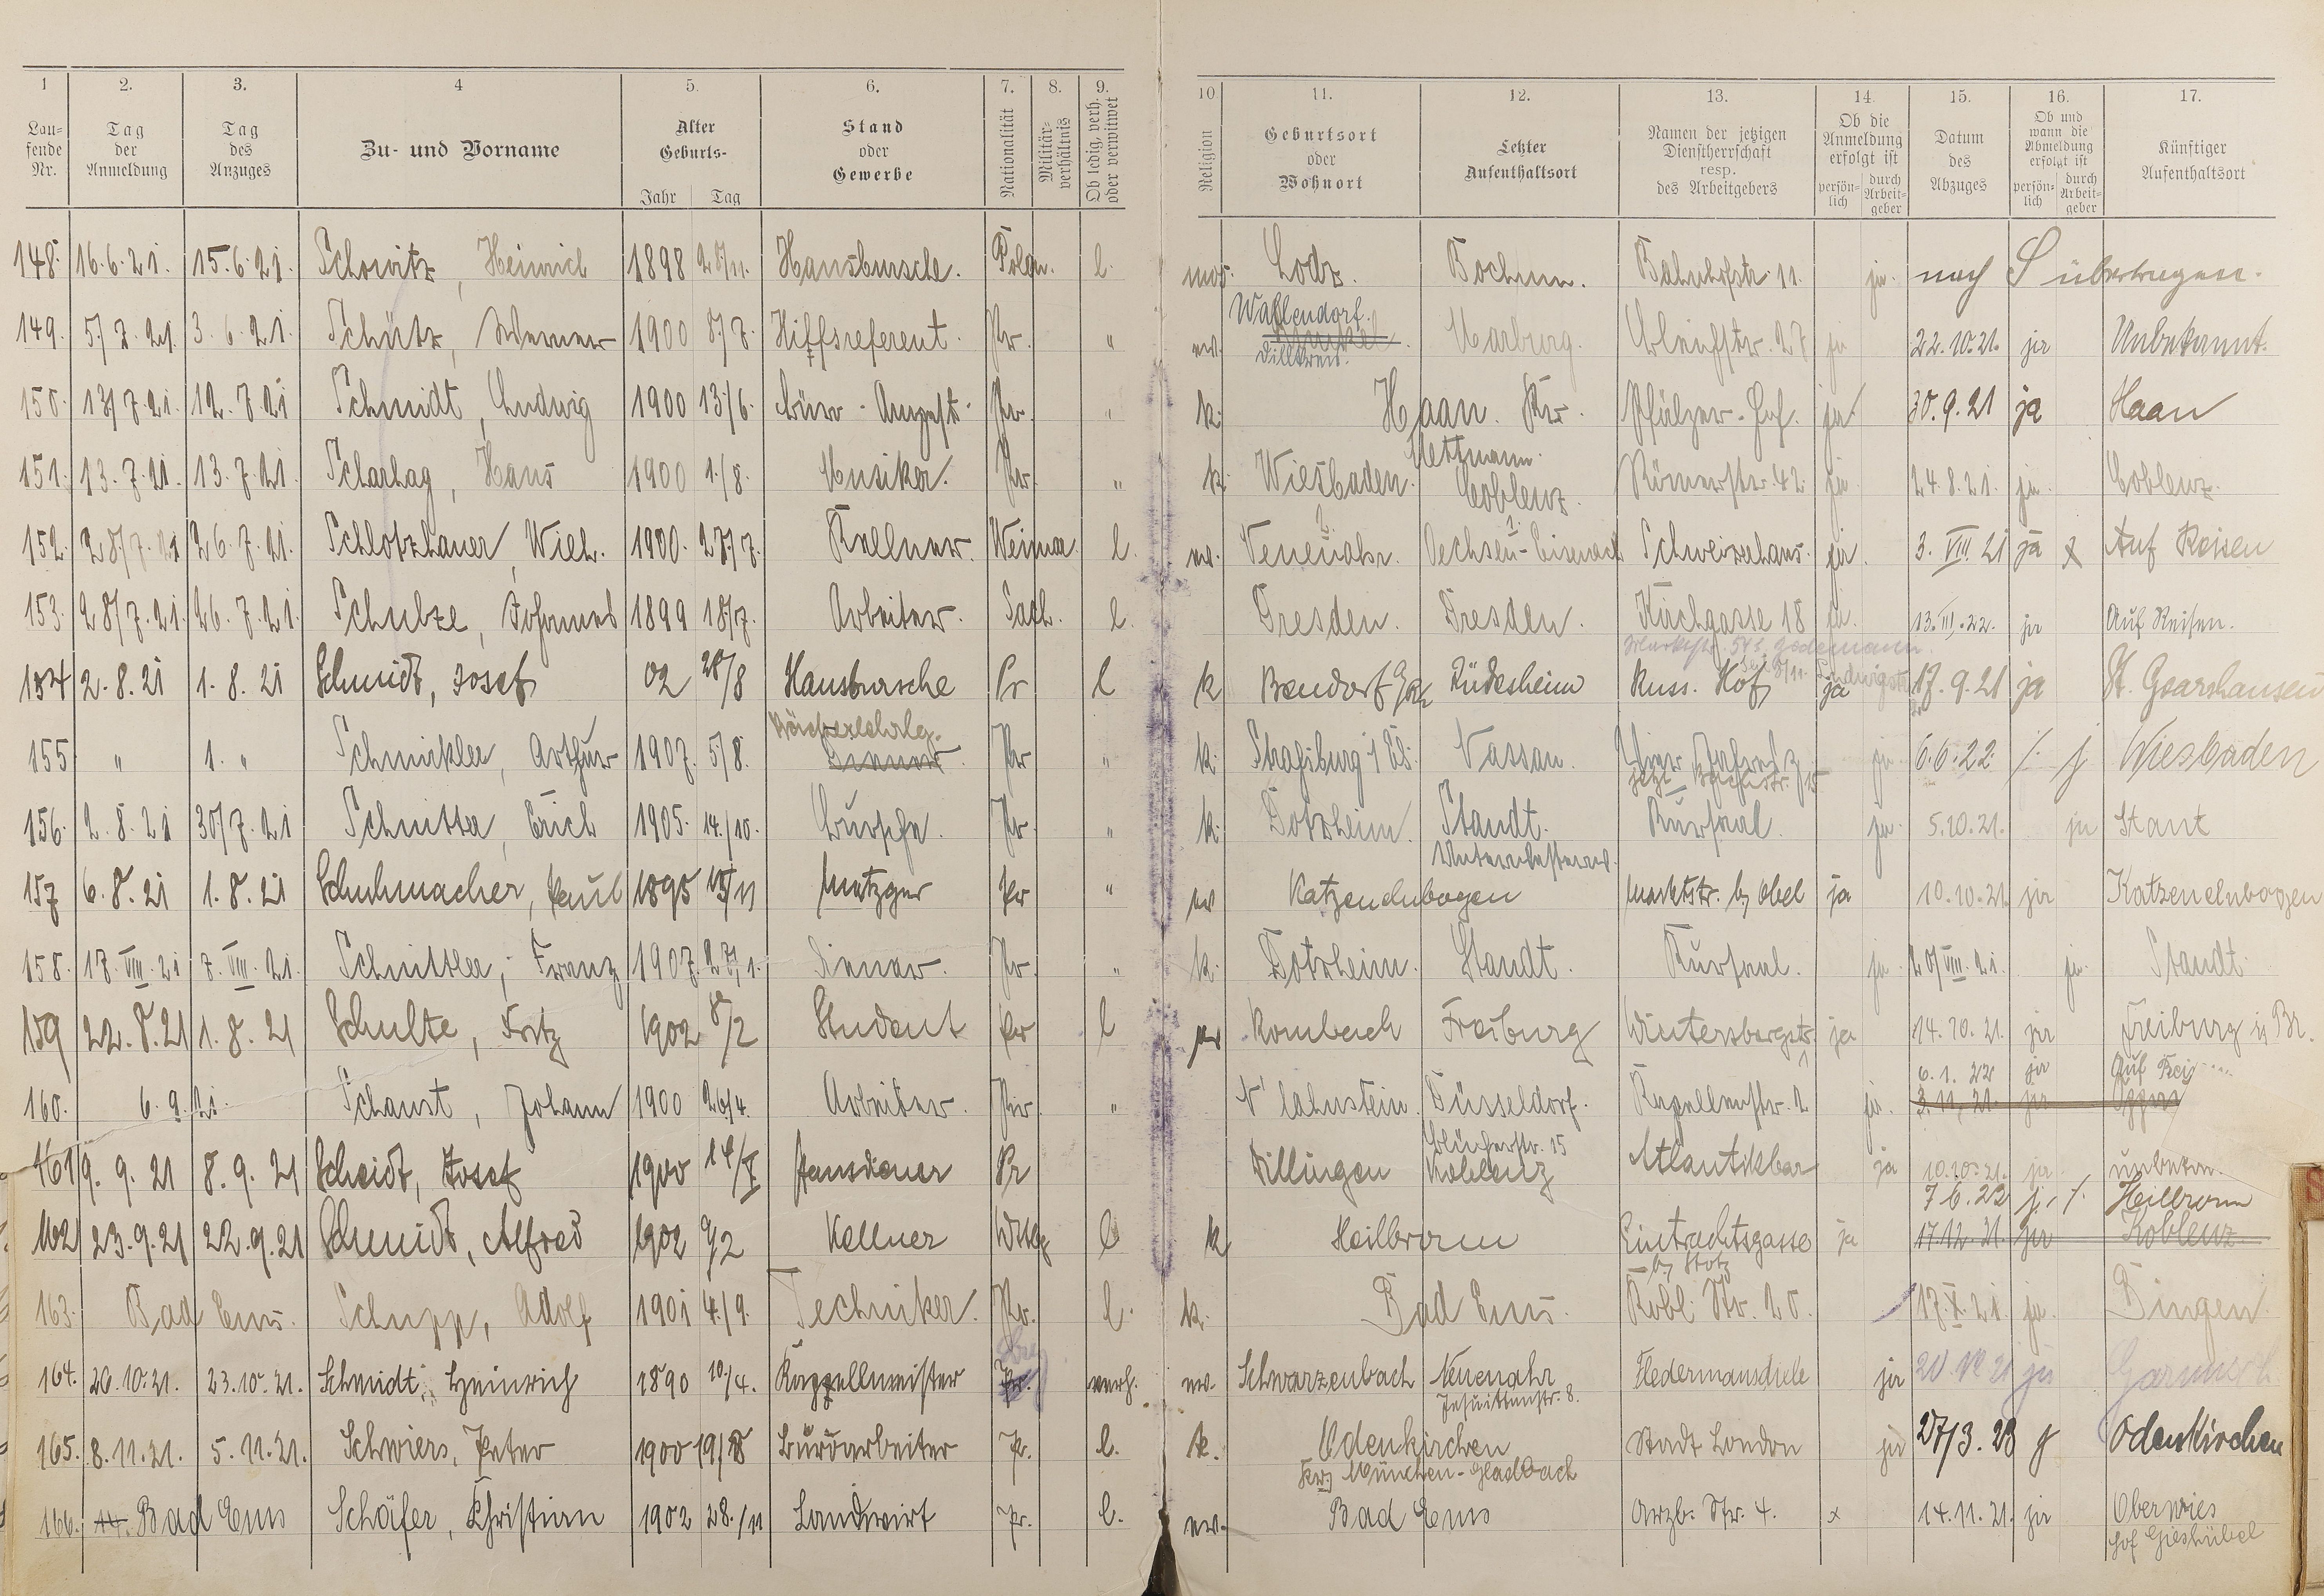 1 2. 3. 4 5. 6. 7. 8. 9. 10 11. 12. 13. 14. 15. 16. 17.
Lau-
fende
Nr.
Tag
der
Anmeldung
Tag
des
Anzuges
Zu- und Vorname
Alter
Geburts-
Jahr Tag
Stand
oder
Gewerbe
Nationalität
Militär-
verhältnis
Ob ledig, verh.
oder verwitwet
Religion
Geburtsort
oder
Wohnort
Letzter
Aufenthaltsort
Namen der jetzigen
Dienstherrschaft
resp.
des Arbeitgebers
Ob die
Anmeldung
erfolgt ist
persön-
lich
durch
Arbeit-
geber
Datum
des
Abzuges
Ob und
wann die
Abmeldung
erfolgt ist
persön-
lich
durch
Arbeit-
geber
Künftiger
Aufenthaltsort
148. 16.6.21. 15.6.21. Schowitz, Heinrich 1898 Hausbursche. Polen. l. mos. Lodz. Bochum. Bahnhofstr. 11. ja. nach S übertragen.
149. 5/7.21. 3.6.21. Schütz, Werner 1900 8/7. Hilfsreferent. Pr. " ev. Wallendorf. Marburg. 27 ja 22.10.21. ja Unbekannt.
Dillkreis.
150. 13/7.21. 12.7.21 Schmidt, Ludwig 1900 13/6. Büro-Angest. Pr. " k. Haan. Kr. Pfälzer-Hof. ja 30.9.21 ja Haan
Mettmann.
151. 13.7.21. 13.7.21 Scharhag, Hans 1900 1./8. Musiker. Pr. " k. Wiesbaden. Coblenz. Römerstr. 42. ja. 24.8.21. ja. Coblenz.
152. 28/7.21 26.7.21. Schlotzhauer, Wilh. 1900. 27/7. Kellner. Weimar. l. ev. Neuenahr. Oechsen-Eisenach Schweizerhaus. ja. 3.VIII.21 ja x Auf Reisen
153. 28/7.21. 26.7.21. Schulze, Johannes 1899 18/7. Arbeiter. Sach. l. Dresden. Dresden. Kirchgasse 18 ja. 13.III.22. ja Auf Reisen.
154 2.8.21 1.8.21 Schmidt, Josef 02 28/8 Hausbursche Pr l k Bendorf Rüdesheim Russ. Hof ja 17.9.21 ja St. Goarshausen
155 " 1. " Schmickler, Arthur 1907. 5/8. Bäckerlehrlg. Diener. Pr " k. Straßburg i/Els. Nassau. Vier Jahresz. ja 6.6.22. j Wiesbaden
156. 2.8.21 30/7.21 Schnitter, Erich 1905. 14./10. Bursche. Pr. " k. Dotzheim. Staudt. Kursaal. ja. 5.10.21. ja Staut
Unterwesterw.
157 6.8.21 1.8.21 Schuhmacher, Paul 1895 15/11 Metzger Pr " ev Katzenelnbogen Marktstr. b/ Ebel ja 10.10.21. ja Katzenelnbogen
158. 17.VIII.21 7.VIII.21. Schnitter, Franz 1907. 27/1. Diener. Pr. " k. Dotzheim. Staudt. Kursaal. ja. 20/VIII.21. ja. Staudt.
159 22.8.21 1.8.21 Schulte, Fritz 1902 8/2 Student Pr l ev Rombach Freiburg Wintersbergstr. ja 14.10.21. ja Freiburg i/Br.
6.1.22 ja Auf Reis
160. 6.9.21. Schaust, Johann 1900 26/4. Arbeiter. Pr. " N'lahnstein. Düsseldorf. Kapellenstr. 2 ja. 3.11.21. ja
Blücherstr. 15
161 9.9.21 8.9.21 Scheidt, Josef 1900 Hausdiener Pr Dillingen Koblenz Atlantikbar ja 10.10.21. ja unbekan.
7.6.22 Heilbronn
162 23.9.21 22.9.21 Schmidt, Alfred 1902 9/2 Kellner Wttbg l k Heilbronn Eintrachtsgasse ja 17.12.21. ja Koblenz
b/ Stotz
163. Bad Ems. Schupp, Adolf 1901 4./9. Techniker. Pr. l. k. Bad Ems. Kobl. Str. 20. 17.X.21. ja. Bingen.
164. 26.10.21. 23.10.21. Schmidt, Heinrich 1890 10./4. Kappellmeister Pr. verh. ev. Schwarzenbach Neuenahr Fledermausdiele ja ja Garmisch
Jesuittenstr. 8.
165. 8.11.21. 5.11.21. Schwiers, Peter 1900 19/8 Büroarbeiter Pr. l. k. Odenkirchen Stadt London ja 27/3.23 j Odenkirchen
Krs München-Gladbach
166. Bad Ems Schäfer, Christian 1902 28./11 Landwirt Pr. l. ev. Bad Ems Arzb. Str. 4. x 14.11.21. ja Oberwies
Hof Gieshübel